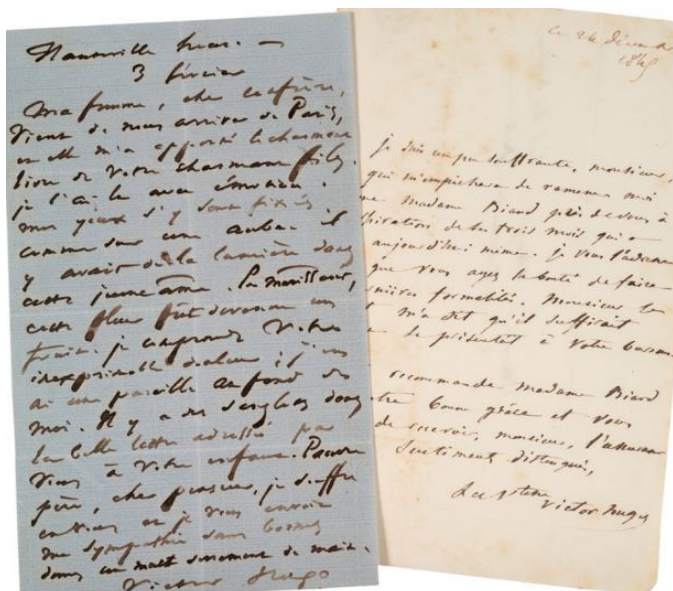 Hauteville house. —
3 février
Ma femme, cher confrère,
vient de nous arriver de Paris,
et elle m'a apporté le charmant
livre de votre charmante fille.
je l'ai lu avec émotion.
mes yeux s'y sont fixés
comme sur une aube. il
y avait de la lumière dans
cette jeune âme. En mûrissant,
cette fleur fût devenue un
fruit. je comprends votre
inexprimable douleur ; j'en
ai une pareille au fond de
moi. Il y a des sanglots dans
la belle lettre adressée par
vous à votre enfant. Pauvre
père, cher penseur, je souffre
et je vous envoie
ma sympathie sans bornes
dans un serrement de main.
Victor Hugo
le 26 décemb
1845
je suis un peu souffrante, monsieur,
qui m'empêchera de ramener moi
me Madame Biard près de vous à
piration de ses trois mois qui a
aujourd'hui même. je vous l'adresse
que vous ayez la bonté de faire
nières formalités. Monsieur le
t m'a dit qu'il suffirait
e se présentât à votre
recommande madame Biard
tre bonne grâce et vous
de recevoir, monsieur, l'assurance
sentiments distingués,
Victor Hugo